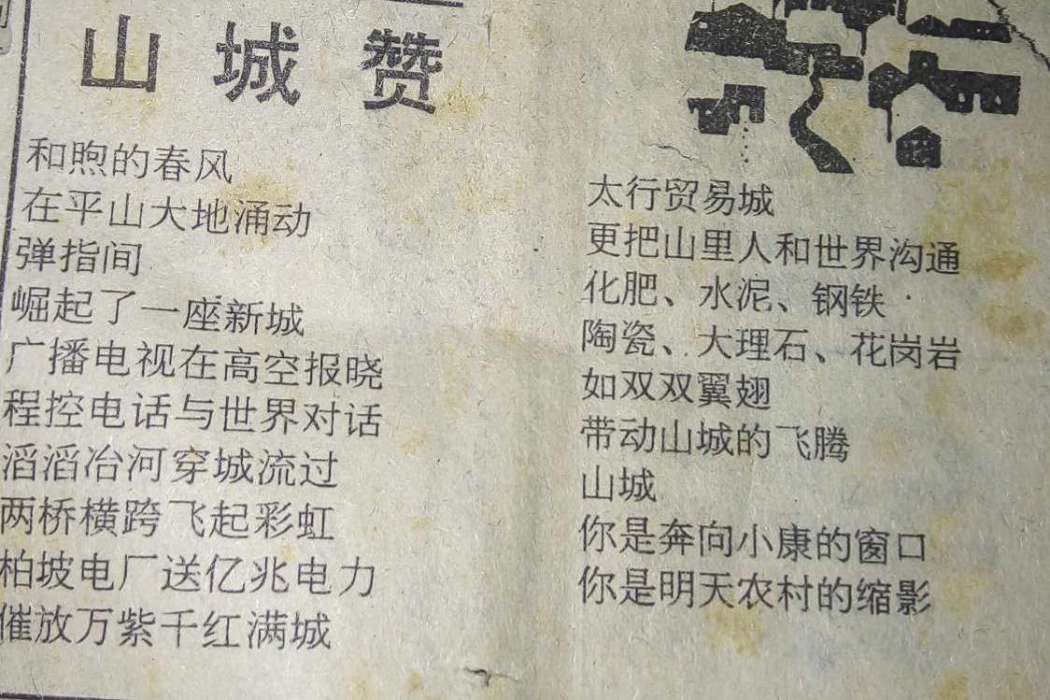 山城赞
和煦的春风
在平山大地涌动
弹指间
崛起了一座新城
广播电视在高空报晓
程控电话与世界对话
滔滔冶河穿城流过
两桥横跨飞起彩虹
柏坡电厂送亿兆电力
催放万紫千红满城
太行贸易城
更把山里人和世界沟通
化肥、水泥、钢铁
陶瓷、大理石、花岗岩
如双双翼翅
带动山城的飞腾
山城
你是奔向小康的窗口
你是明天农村的缩影